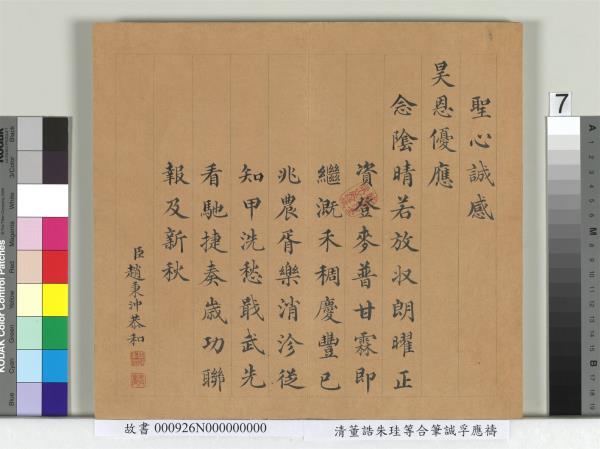 聖心誠感
昊恩優應
念陰晴若放收朗曜正
資登麥普甘霖即
繼溉禾稠慶豐已
兆農胥樂消沴從
知甲洗愁戢武先
看馳捷奏歲功聯
報及新秋
臣趙秉沖恭和
7
故書 000926N000000000
清董誥朱珪等合筆誠孚應禱
KODAK Color Control Patches